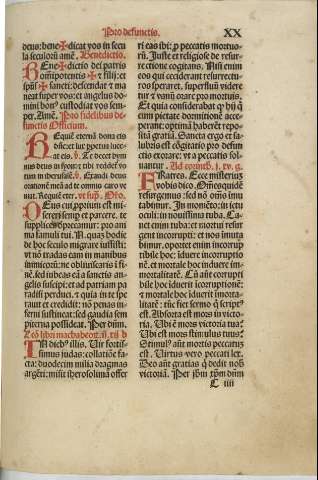 Pro defunctis.
XX
deus: bene✠dicat vos in secu
la seculorū amē. Benedictio.
BEne✠dictio dei patris
om̄ipotentis ✠ et filij: et
sp̄us ✠ sancti: descendat ⁊ ma
neat super vos: et angelus do
mini bon⁹ custodiat vos sem
per. Amē. Pro fidelibus de
functis Officium.
REquiē eternā dona eis
dn̄e: et lux ꝑpetua luce-
at eis. ℣. Te decet hym
nus deus in syon: ⁊ tibi reddet̉ vo
tum in iherusalē. ℣. Exaudi deus
orationē meā ad te omnis caro ve
niet. Requiē eter. vt sup̄. Oro.
DEus cui propriuꝫ est mi-
sereri semp ⁊ parcere. te
supplices deprecamur: pro ani
ma famuli tui. N. quaꝫ hodie
de hoc seculo migrare iussisti:
vt nō tradas eam in manibus
inimicoꝝ: ne obliuiscaris i fi
nē. sed iubeas eā a sanctis an-
gelis suscipi: et ad patriam pa
radisi perduci. ⁊ quia in te spe
rauit et credidit: nō penas in
ferni sustineat: sed gaudia sem
piterna possideat. Per dūm.
Lcō libri machabeoꝝ. ij. xij b
IN dieb⁹ illis. Uir fortis-
simus iudas: collatiōe fa-
cta: duodecim milia dragmas
argēti: misit iherosolimā offer
ri eas ibi: ꝓ peccatis mortuo-
rū. Juste et religiose de resur-
rectione cogitans. Nisi enim
eos qui ceciderant resurrectu-
ros speraret. superfluū videre
tur ⁊ vanū orare pro mortuis.
Et quia considerabat ꝙ hij q̄
cum pietate dormitionē acce-
perant: optimā haberēt repo-
sitā gratiā. Sancta ergo et sa-
lubris est cōgitatio pro defun
ctis exorare: vt a peccatis sol-
uantur. Ad corinth. j. xv. g.
FRatres. Ecce misteriuꝫ
vobis dico. Om̄es quidē
resurgemus: sed nō om̄s īmu
tabimur. Jn momēto: in ictu
oculi: in nouissima tuba. Ca-
net enim tuba: et mortui resur
gent incorrupti: et nos īmuta
bimur. oportet enim corrupti
bile hoc: induere incorruptio
nē. et mortale hoc induere im-
mortalitatē. Cū aūt corrupti
bile hoc īduerit īcorruptionē:
⁊ mortale hoc īduerit īmorta-
litatē: tūc fiet sermo q̄ script⁹
est. Absorta est mors in victo
ria. Ubi ē mors victoria tua?
Ubi est mors stimulus tuus?
Stimul⁹ aūt mortis peccatuꝫ
est. Uirtus vero peccati lex.
Deo aūt gratias ꝙ dedit nob̄
victoriā. Per ihm̄ xp̄m dn̄m
C iiij